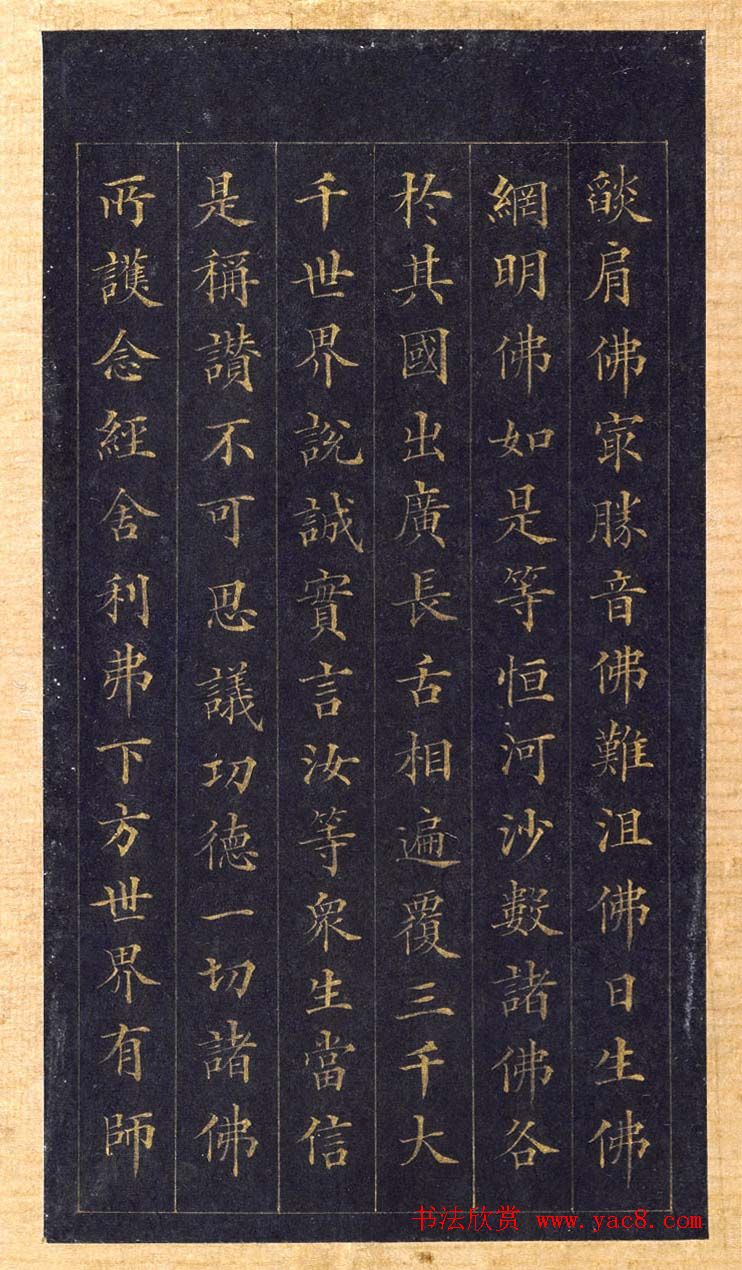 燄肩佛冣勝音佛難沮佛日生佛
網明佛如是等恒河沙數諸佛各
於其國出廣長舌相遍覆三千大
千世界說誠實言汝等眾生當信
是稱讚不可思議功德一切諸佛
所護念經舍利弗下方世界有師
书法欣赏 www.yac8.com